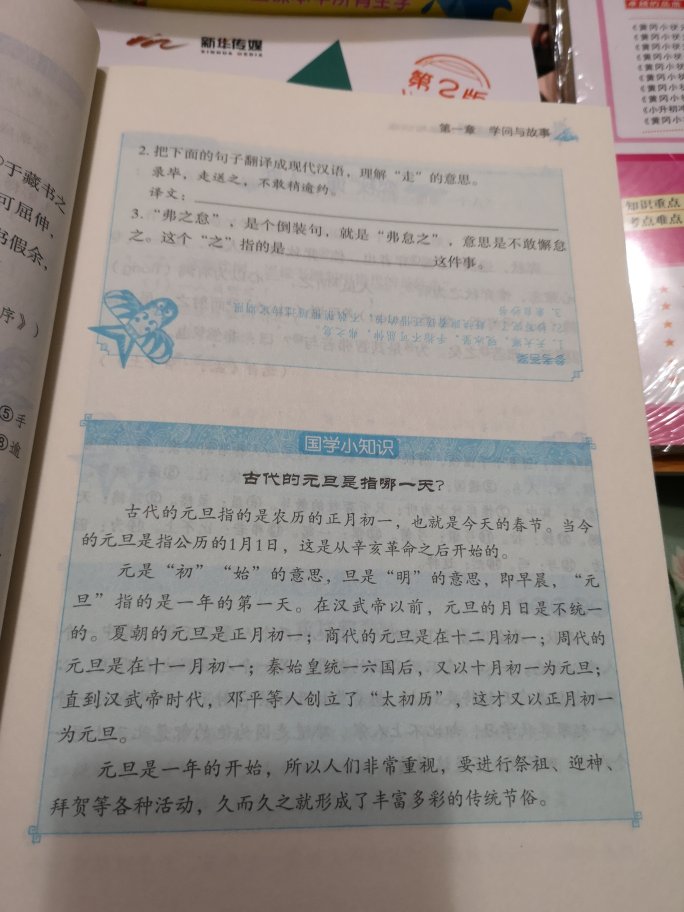 新华传媒
XINHUA MEDIA
第2版
《黄冈小状
《黄冈小状
《黄冈小状
《黄冈小状
《黄冈小状
《黄冈小状
《小升初冲
知识重点
考点难点
于藏书之
可屈伸，
书假余，
序》）
⑤手
⑧逾
第一章 学问与故事
2. 把下面的句子翻译成现代汉语，理解“走”的意思。
录毕，走送之，不敢稍逾约。
译文：
3. “弗之怠”，是个倒装句，就是“弗怠之”，意思是不敢懈怠
之。这个“之”指的是 这件事。
参考答案
国学小知识
古代的元旦是指哪一天？
古代的元旦指的是农历的正月初一，也就是今天的春节。当今
的元旦是指公历的1月1日，这是从辛亥革命之后开始的。
元是“初”“始”的意思，旦是“明”的意思，即早晨，“元
旦”指的是一年的第一天。在汉武帝以前，元旦的月日是不统一
的。夏朝的元旦是正月初一；商代的元旦是在十二月初一；周代的
元旦是在十一月初一；秦始皇统一六国后，又以十月初一为元旦；
直到汉武帝时代，邓平等人创立了“太初历”，这才又以正月初一
为元旦。
元旦是一年的开始，所以人们非常重视，要进行祭祖、迎神、
拜贺等各种活动，久而久之就形成了丰富多彩的传统节俗。